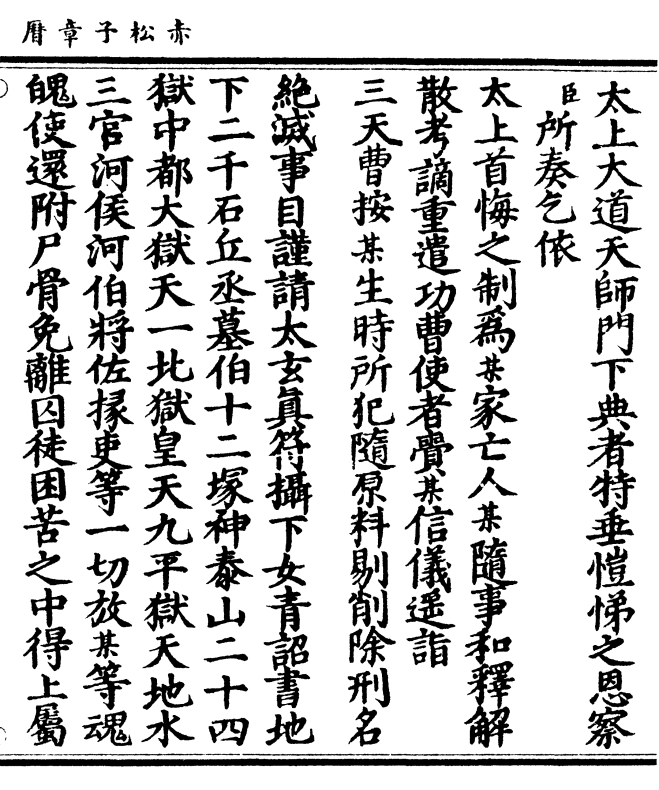 赤松子章曆
太上大道天師門下典者特垂愷悌之恩察
臣所奏乞依
太上首悔之制爲某家亡人某隨事和釋解
散考謫重遣功曹使者賫某信儀遥詣
三天曹按某生時所犯隨原料剔削除刑名
絶滅事目謹請太玄眞符攝下女青詔書地
下二千石丘丞墓伯十二塚神泰山二十四
獄中都大獄天一北獄皇天九平獄天地水
三官河侯河伯將佐掾吏等一切放某等魂
魄使還附尸骨免離囚徒困苦之中得上屬